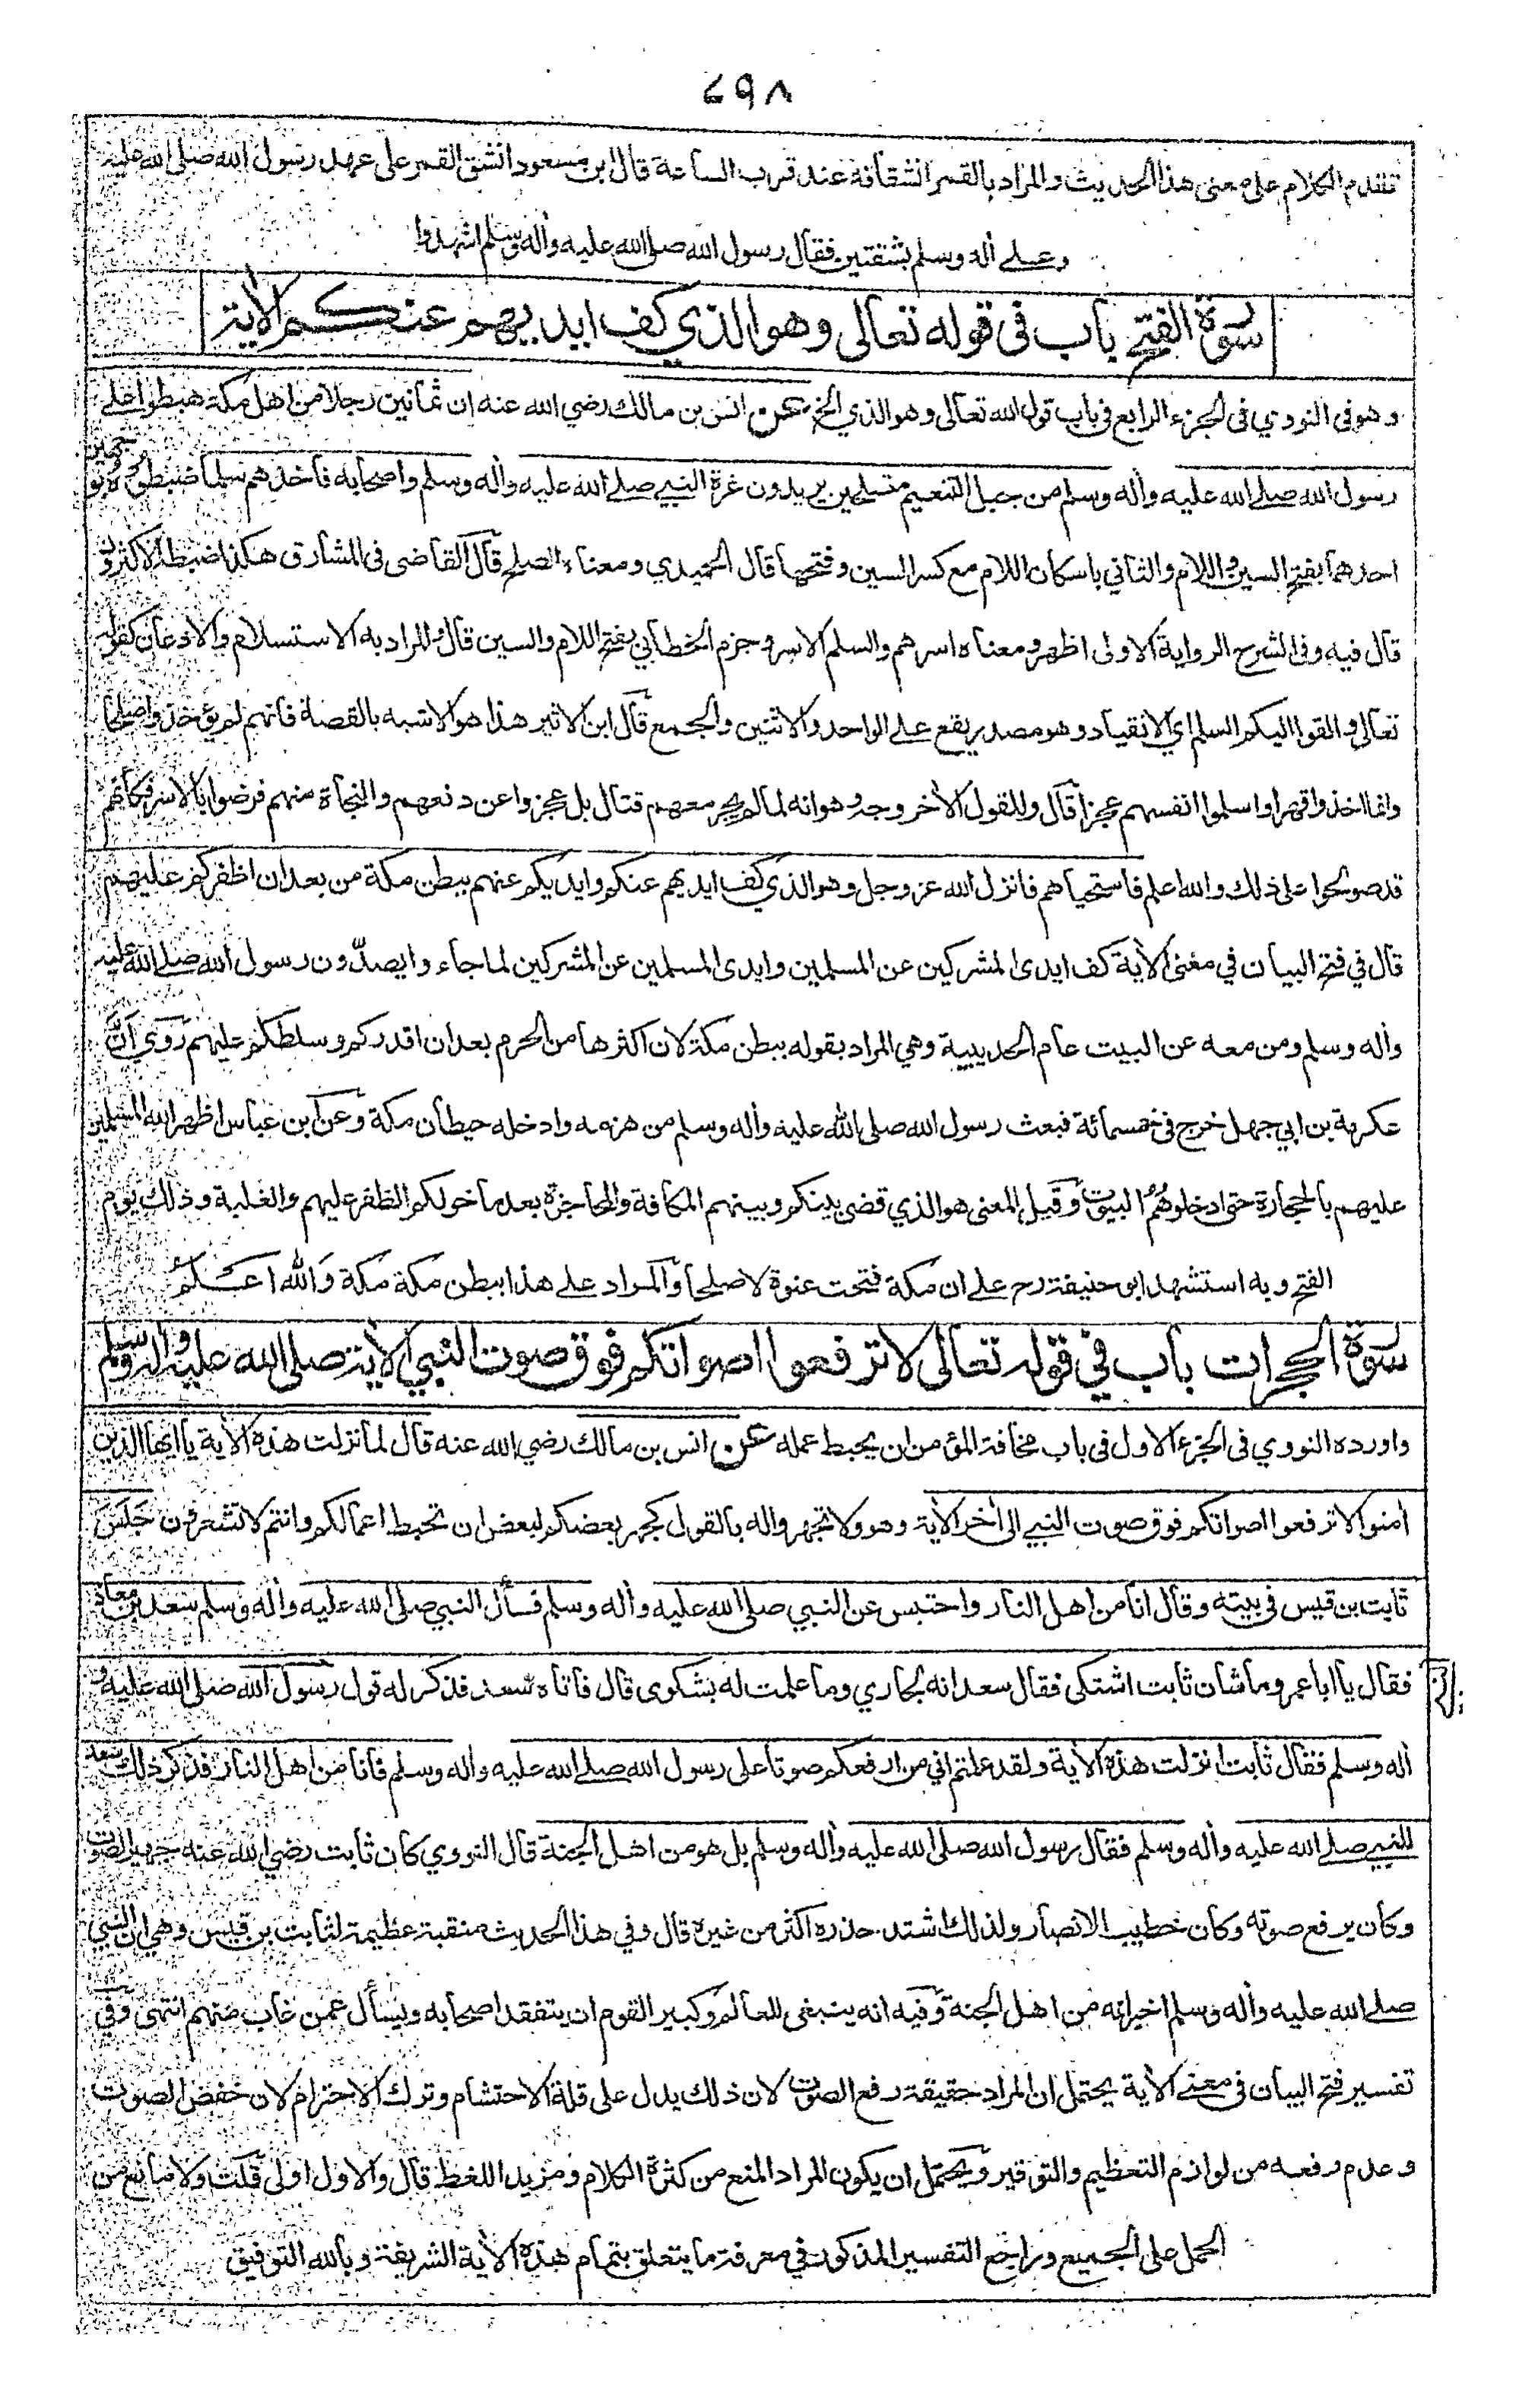 ٧٩٨
تقدم الكلام على معنى هذا الحديث والمراد بالقمر انشقاقه عند قرب الساعة قال ابن مسعود انشق القمر على عهد رسول الله صلى الله عليه
وعلى أله وسلم بشقتين فقال رسول الله صلى الله عليه وأله وسلم اشهدوا
سورة الفتح باب فى قوله تعالى وهو الذي كف ايديهم عنكم الأية
وهو فى النووي فى الجزء الرابع فى باب قول الله تعالى وهو الذي الخ عن انس بن مالك رضي الله عنه ان ثمانين رجلا من اهل مكة هبطوا على
رسول الله صلى الله عليه وأله وسلم من جبل التنعيم متسلحين يريدون غرة النبي صلى الله عليه وأله وسلم واصحابه فأخذهم سلما ضبطوه بوجهين
احدهما بفتح السين واللام والثاني باسكان اللام مع كسر السين وفتحها قال الحميدي ومعناه الصلح قال القاضى فى المشارق هكذا ضبطه الاكثرون
قال فيه وفى الشرح الرواية الاولى اظهر ومعناه اسرهم والسلم الاسر وجزم الخطابي بفتح اللام والسين قال والمراد به الاستسلام والاذعان كقوله
تعالى والقوا اليكم السلم اي الانقياد وهو مصدر يقع على الواحد والاثنين والجمع قال ابن الاثير هذا هو الاشبه بالقصة فانهم لم يؤخذوا صلحا
وانما اخذوا قهرا واسلموا انفسهم عجزا قال وللقول الأخر وجه وهو انه لما لم يجر معهم قتال بل عجزوا عن دفعهم والنجاة منهم فرضوا بالاسر فكأنهم
قد صولحوا على ذلك والله اعلم فاستحياهم فانزل الله عز وجل وهو الذي كف ايديهم عنكم وايديكم عنهم ببطن مكة من بعد ان اظفركم عليهم
قال في فتح البيان في معنى الأية كف ايدى المشركين عن المسلمين وايدى المسلمين عن المشركين لما جاءوا يصدّون رسول الله صلى الله عليه
وأله وسلم ومن معه عن البيت عام الحديبية وهي المراد بقوله ببطن مكة لان اكثرها من الحرم بعد ان اقدركم وسلطكم عليهم روي انّ
عكرمة بن ابي جهل خرج فى خمسمائة فبعث رسول الله صلى الله عليه وأله وسلم من هزمه وادخله حيطان مكة وعن ابن عباس اظهر الله المسلمين
عليهم بالحجارة حتى ادخلوهُمُ البيوت وقيل المعنى هو الذي قضى بينكم وبينهم المكافة والمحاجزة بعد ما خولكم الظفر عليهم والغلبة وذلك يوم
الفتح وبه استشهد ابو حنيفة رح على ان مكة فتحت عنوة لا صلحا والمراد على هذا ببطن مكة مكة وَالله اعلمُ
سورة الحجرات باب في قوله تعالى لا ترفعوا اصواتكم فوق صوت النبي الأية صلى الله عليه وأله وسلم
واورده النووي فى الجزء الاول فى باب مخافة المؤمن ان يحبط عمله عن انس بن مالك رضي الله عنه قال لما نزلت هذه الأية يا ايها الذين
أمنوا لا ترفعوا اصواتكم فوق صوت النبي الى أخر الأية وهو ولا تجهروا له بالقول كجهر بعضكم لبعض ان تحبط اعمالكم وانتم لا تشعرون جَلَسَ
ثابت بن قيس فى بيته وقال انا من اهل النار واحتبس عن النبي صلى الله عليه وأله وسلم فسأل النبي صلى الله عليه وأله وسلم سعد بن معاذ
فقال يا ابا عمرو ما شان ثابت اشتكى فقال سعد انه لجاري وما علمت له بشكوى قال فاتاه سعد فذكر له قول رسول الله صلى الله عليه و
أله وسلم فقال ثابت انزلت هذه الأية ولقد علمتم اني من ارفعكم صوتا على رسول الله صلى الله عليه وأله وسلم فانا من اهل النار فذكر ذلك سعد
للنبي صلى الله عليه وأله وسلم فقال رسول الله صلى الله عليه وأله وسلم بل هو من اهل الجنة قال النووي كان ثابت رضي الله عنه جهير الصوت
وكان يرفع صوته وكان خطيب الانصار ولذلك اشتد حذره اكثر من غيره قال وفي هذا الحديث منقبة عظيمة لثابت بن قيس وهي ان النبي
صلى الله عليه وأله وسلم اخبر انه من اهل الجنة وفيه انه ينبغى للعالم وكبير القوم ان يتفقد اصحابه ويسأل عمن غاب منهم انتهى وفي
تفسير فتح البيان فى معنى الأية يحتمل ان المراد حقيقة رفع الصوت لان ذلك يدل على قلة الاحتشام وترك الاحترام لان خفض الصوت
وعدم رفعه من لوازم التعظيم والتوقير ويحتمل ان يكون المراد المنع من كثرة الكلام ومزيد اللغط قال والاول اولى قلت ولا مانع من
الحمل على الجميع وراجع التفسير المذكور في معرفة ما يتعلق بتمام هذه الأية الشريفة وبالله التوفيق